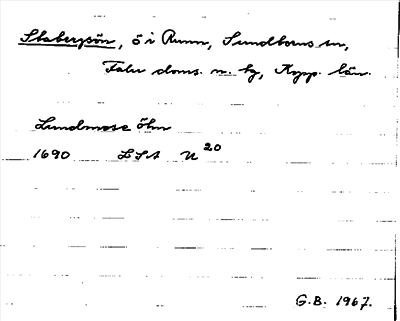 Stabergsön, ö i Runn, Sundborns sn,
Falu doms. n. tg, Kopp. län.
Lundmose öhn
1690 LSA U 20
G.B. 1967.